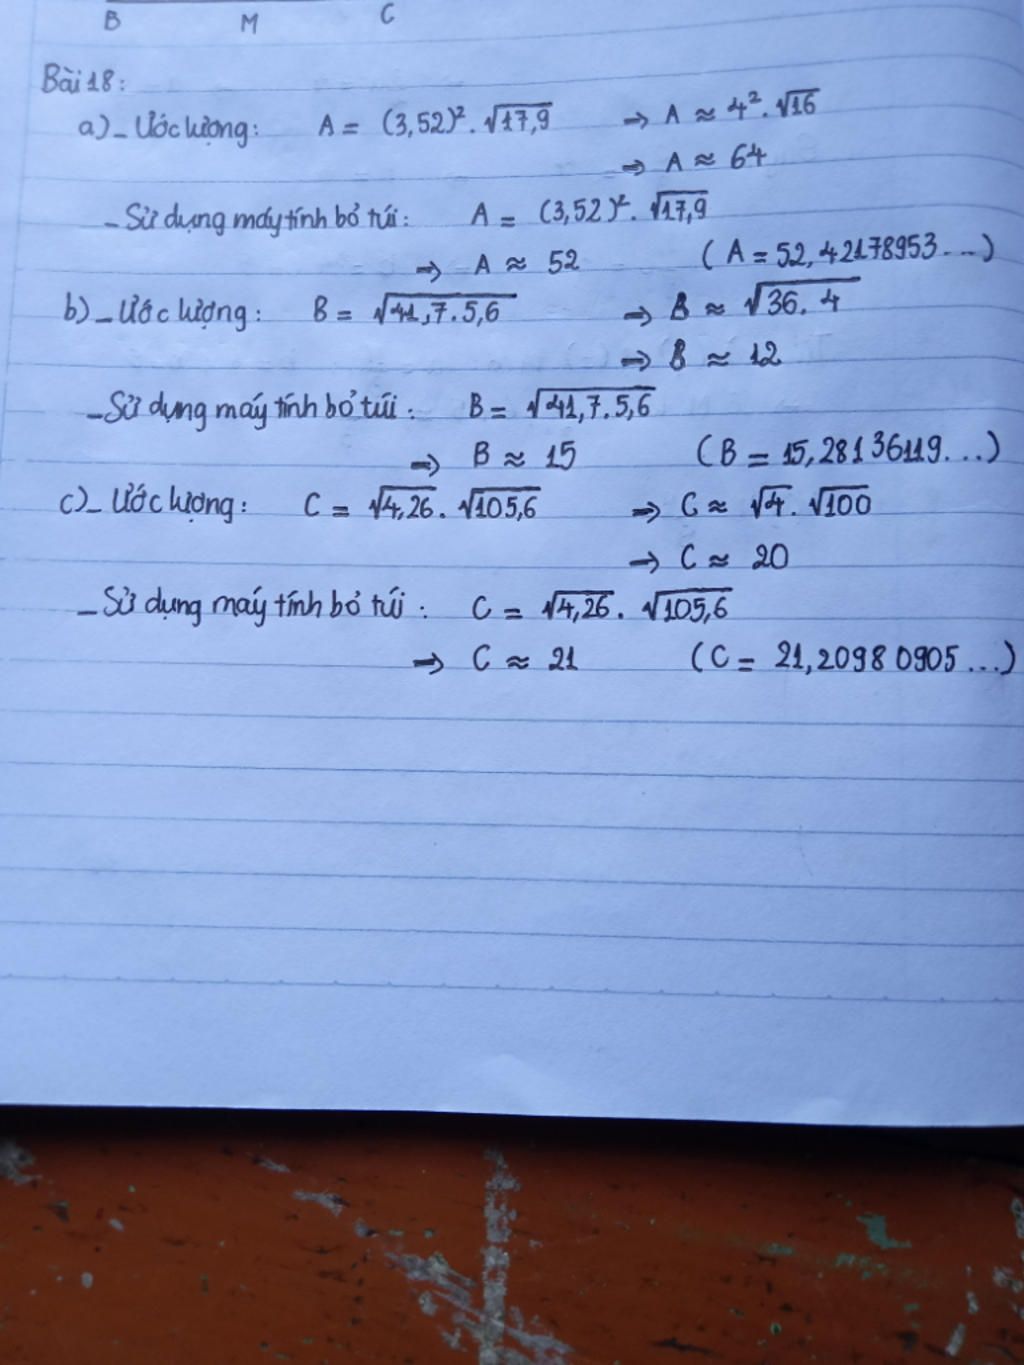 B M C
Bài 18:
a)_ Ước lượng: A = (3,52)². √17,9 ⇒ A ≈ 4². √16
⇒ A ≈ 64
_ Sử dụng máy tính bỏ túi: A = (3,52)². √17,9
⇒ A ≈ 52 (A = 52,42178953...)
b)_ Ước lượng: B = √41,7.5,6 ⇒ B ≈ √36.4
⇒ B ≈ 12
_Sử dụng máy tính bỏ túi: B = √41,7.5,6
⇒ B ≈ 15 (B = 15,28136119...)
c)_ Ước lượng: C = √4,26. √105,6 ⇒ C ≈ √4. √100
⇒ C ≈ 20
_Sử dụng máy tính bỏ túi: C = √4,26. √105,6
⇒ C ≈ 21 (C = 21,20980905...)